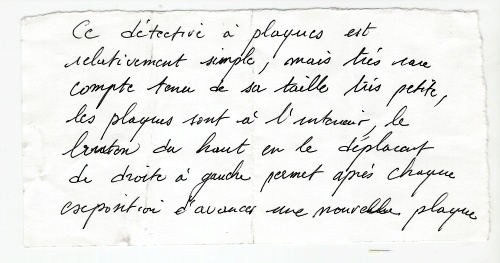 Ce détective à plaques est
relativement simple, mais très rare
compte tenu de sa taille très petite,
les plaques sont à l'interieur, le
bouton du haut en le déplacant
de droite à gauche permet après chaque
exposition d'avancer une nouvelle plaque